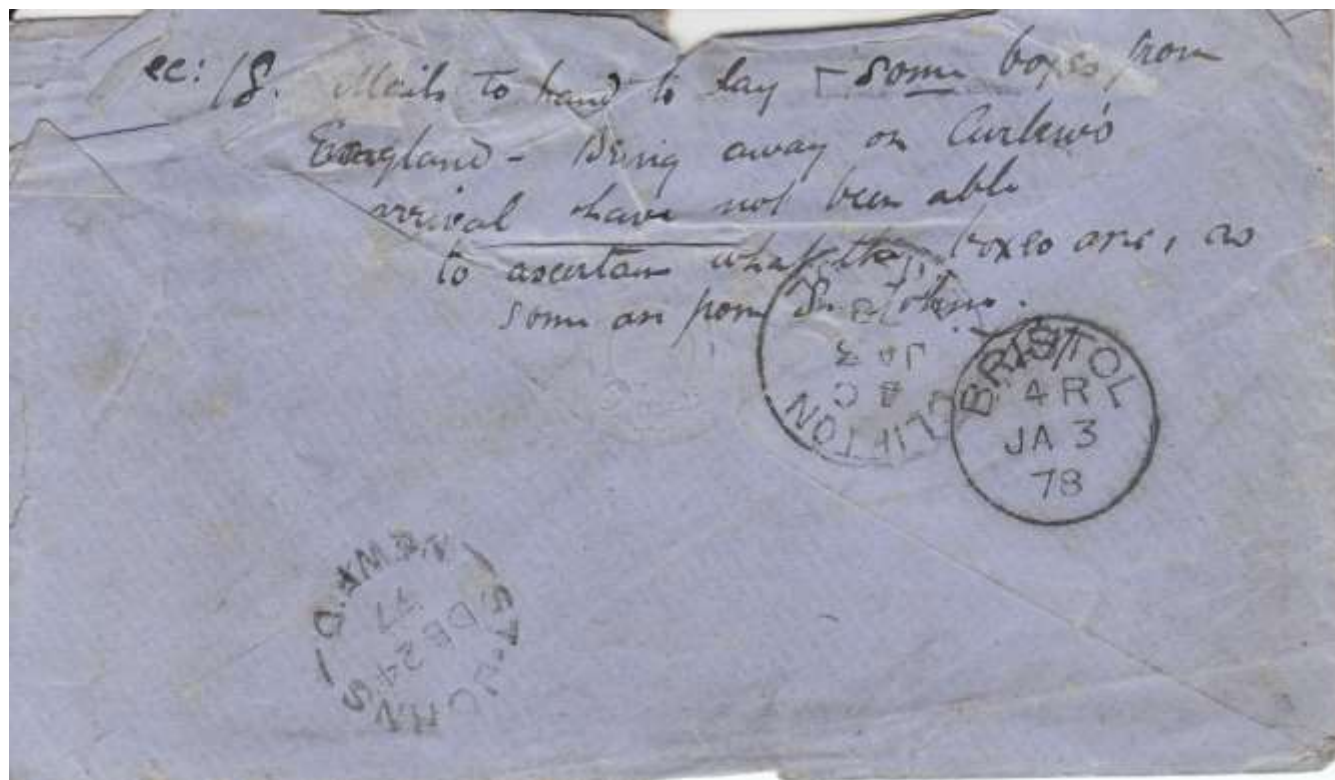 ec: 18. Mails to hand to day – some boxes from
England – Being away on Curlew's
arrival have not been able
to ascertain what the boxes are, as
some are from St. Johns.
CLIFTON
JA 3
BRISTOL
4 R
JA 3
78
ST. JOHNS
NEWF'D
DE 24
77